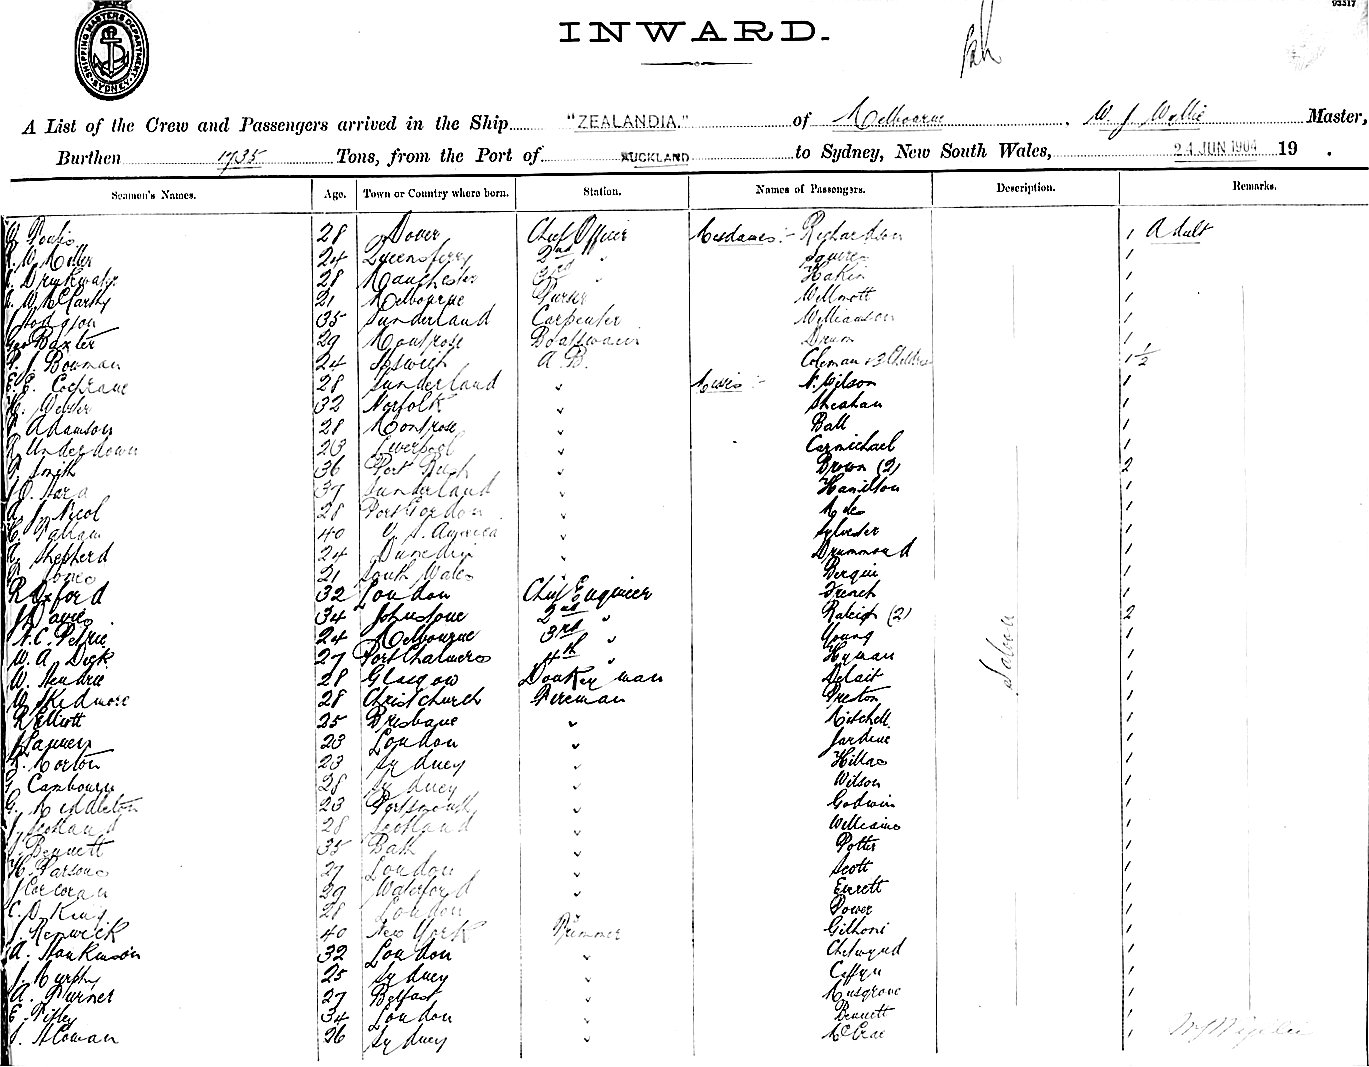 93317
SHIPPING MASTERS DEPARTMENT SYDNEY
INWARD.
A List of the Crew and Passengers arrived in the Ship "ZEALANDIA." of Melbourne, W. J. Wyllie Master,
Burthen 1735 Tons, from the Port of AUCKLAND to Sydney, New South Wales, 24 JUN 1904 19 .
Seamen's Names. Age. Town or Country where born. Station. Names of Passengers. Description. Remarks.
28 Dover Chief Officer Mesdames :- Richardson 1 Adult
Miller 24 Queensferry 2nd " Squires 1
Drinkwater 28 Manchester 3rd " Hakin 1
W McClarty 21 Melbourne Purser Willmott 1
Hodgson 35 Sunderland Carpenter Williamson 1
Geo Baxter 29 Montrose Boatswain 1
J Bowman 24 Ipswich A.B. Coleman & 3 Children 1 1/2
E. E. Cochrane 28 Sunderland " Misses :- N. Gilson 1
Webster 32 Norfolk " Sheahan 1
Adamson 28 Montrose " Ball 1
R Underdown 23 Liverpool " Carmichael 1
Smith 36 Port " Brown (2) 2
O'Hara 37 Sunderland " Hamilton 1
J Nicol 28 Port Gordon " 1
40 U. S. America " Sylvester 1
Shepherd 24 Dunedin " Drummond 1
Jones 21 South Wales Berquin 1
R Oxford 32 London Chief Engineer French 1
J Davies 34 Johnstone 2nd " Raleigh (2) 2
N. C. Petrie 24 Melbourne 3rd " Young 1
W. A. Dick 27 Port Chalmers 4th " Hyman 1
W. Hendrie 28 Glasgow Donkeyman 1
Skidmore 28 Christchurch Fireman Preston 1
R Elliott 25 Brisbane " Mitchell 1
23 London " Jardine 1
Morton 23 Sydney " Hillas 1
Cambourn 28 Sydney " Wilson 1
G. Middleton 23 Portsmouth " Godwin 1
J Scotland 28 Scotland " Williams 1
Bennett 35 Bath " Potter 1
H. Parsons 27 London " Scott 1
J Corcoran 29 Waterford " Everett 1
C. D. King 28 London Power 1
J. Renwick 40 New York Trimmer 1
A. Hankinson 32 London " Chetwynd 1
J. Murphy 25 Sydney " 1
A. Turner 27 Belfast " Musgrove 1
34 London " Bennett 1
26 Sydney " McCrae 1
Saloon